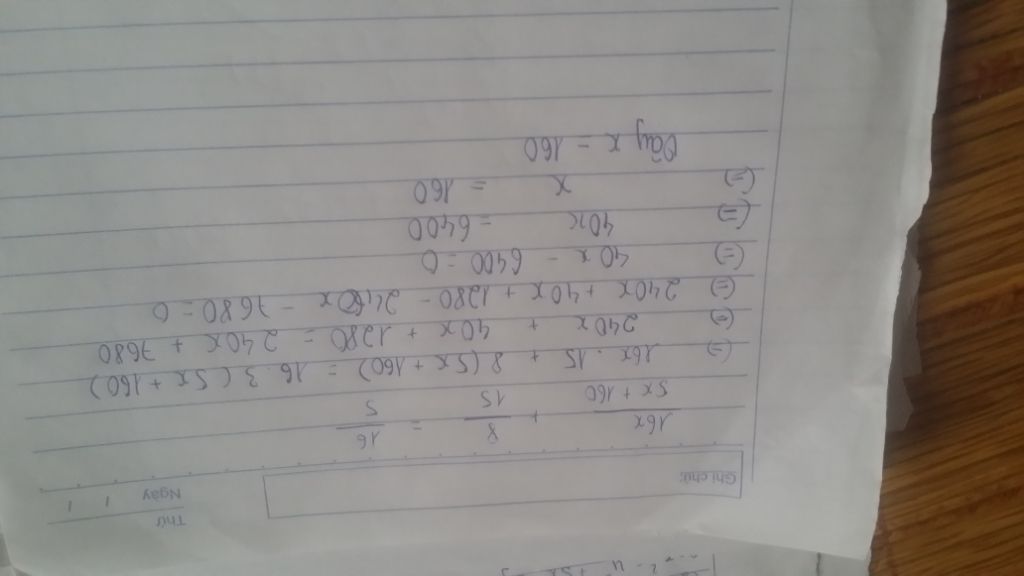 Thứ
Ngày / /
Ghi chú:
16x/(5x + 160) + 8/15 = 16/5
(=) 16x . 15 + 8(5x + 160) = 16 . 3(5x + 160)
(=) 240x + 40x + 1280 = 240x + 7680
(=) 240x + 40x + 1280 - 240x - 7680 = 0
(=) 40x - 6400 = 0
(=) 40x = 6400
(=) x = 160
Vậy x = 160